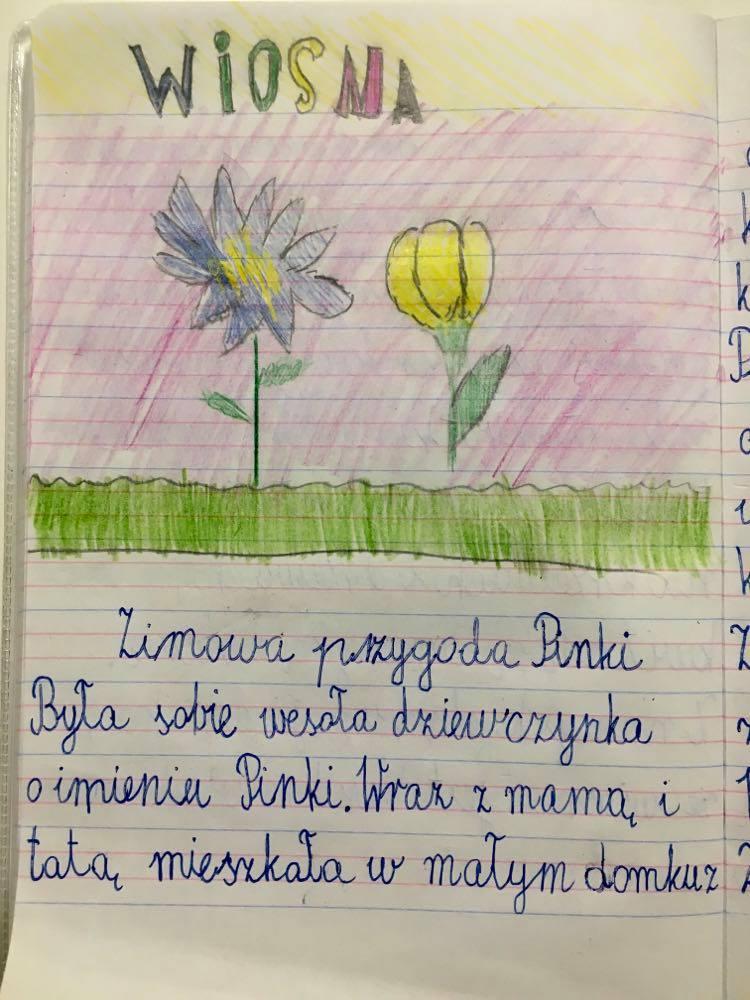 WiOSNA
Zimowa przygoda Pinki
Była sobie wesoła dziewczynka
o imieniu Pinki. Wraz z mamą i
tatą mieszkała w małym domku z